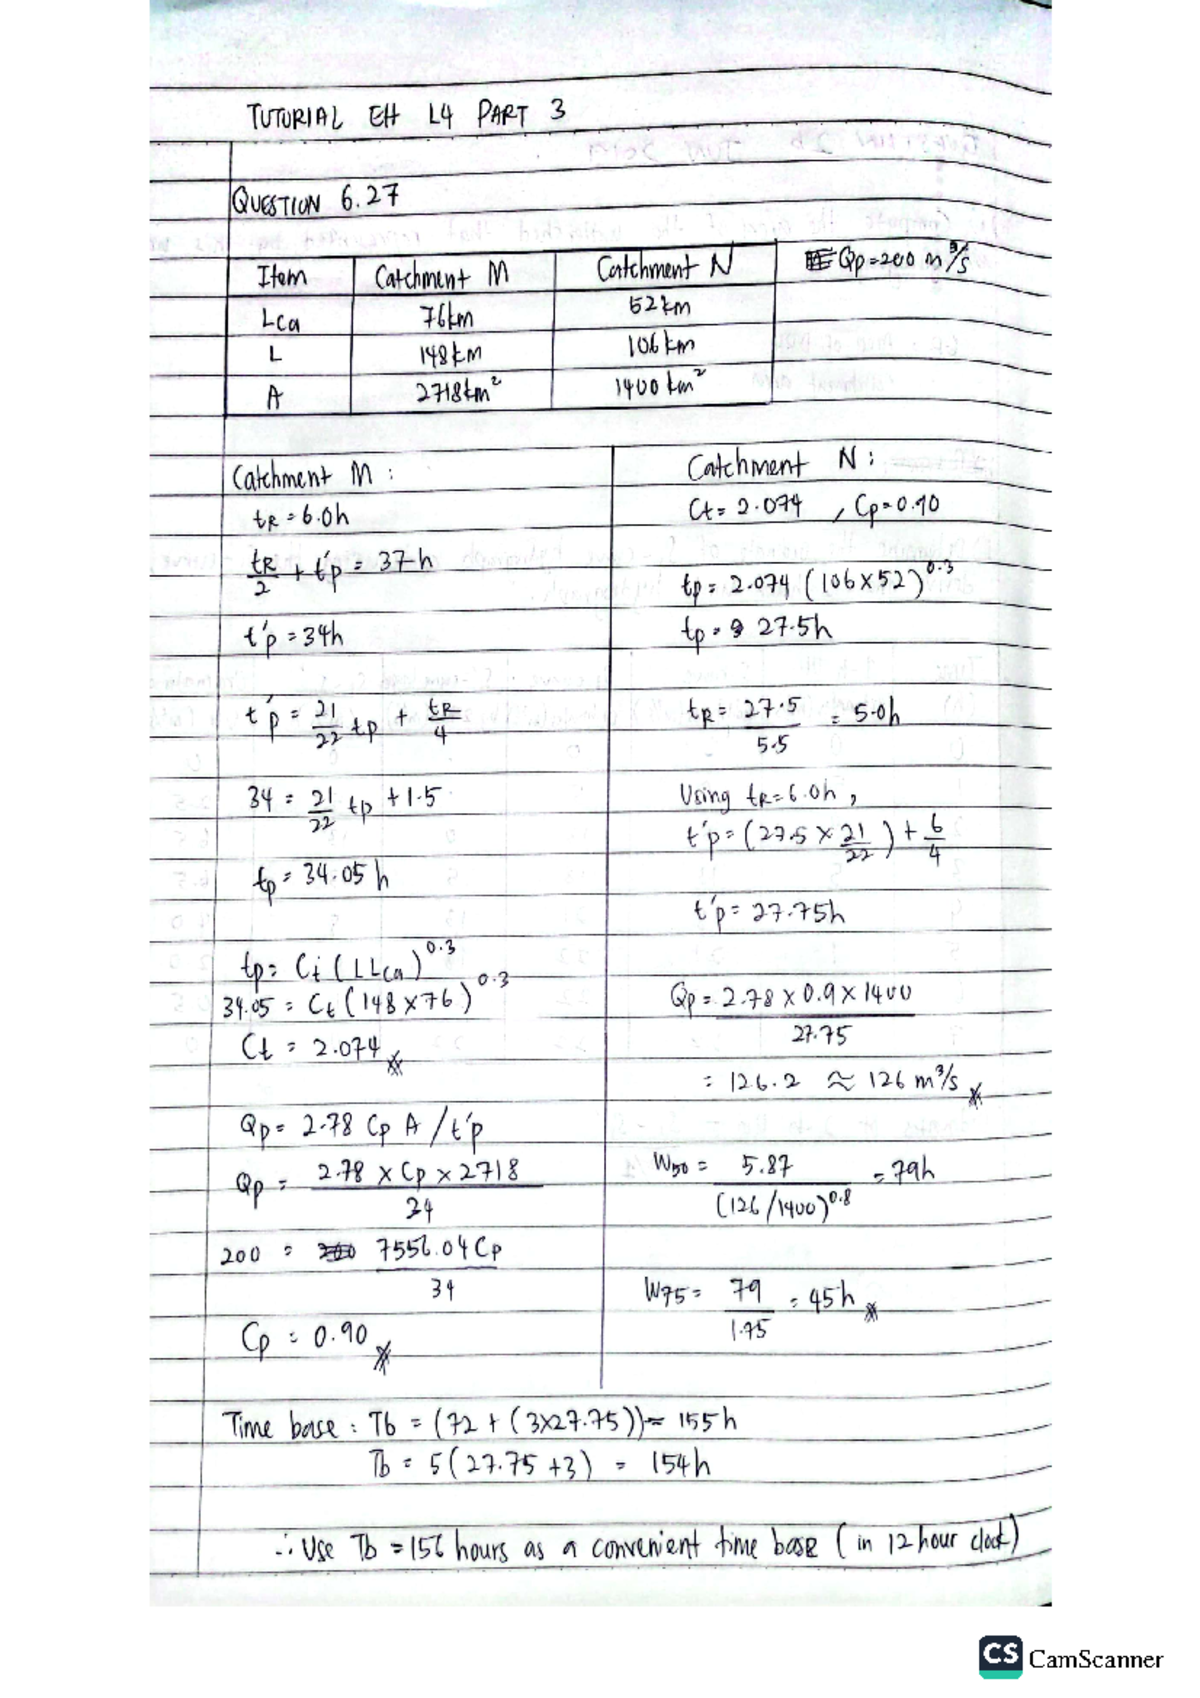 TUTORIAL EH L4 PART 3
QUESTION 6.27
Item | Catchment M | Catchment N
Lca | 76km | 52km
L | 148km | 106km
A | 2718km² | 1400km²
Qp=200 m³/s
Catchment M :
tR = 6.0h
tR/2 + t'p = 37h
t'p = 34h
t'p = 21/22 tp + tR/4
34 = 21/22 tp + 1.5
tp = 34.05h
tp = Ct (LLca)^0.3
34.05 = Ct (148×76)^0.3
Ct = 2.074
Qp = 2.78 Cp A / t'p
Qp = 2.78 × Cp × 2718 / 34
200 = 7556.04 Cp / 34
Cp = 0.90
Catchment N :
Ct = 2.074 , Cp = 0.90
tp = 2.074 (106×52)^0.3
tp = 27.5h
tR = 27.5 / 5.5 = 5.0h
Using tR = 6.0h ,
t'p = (27.5 × 21/22) + 6/4
t'p = 27.75h
Qp = 2.78 × 0.9 × 1400 / 27.75
= 126.2 ≈ 126 m³/s
W50 = 5.87 / (126/1400)^0.8 = 79h
W75 = 79 / 1.75 = 45h
Time base : Tb = (72 + (3×27.75)) = 155h
Tb = 5(27.75 + 3) = 154h
∴ Use Tb = 156 hours as a convenient time base (in 12 hour clock)
CS CamScanner